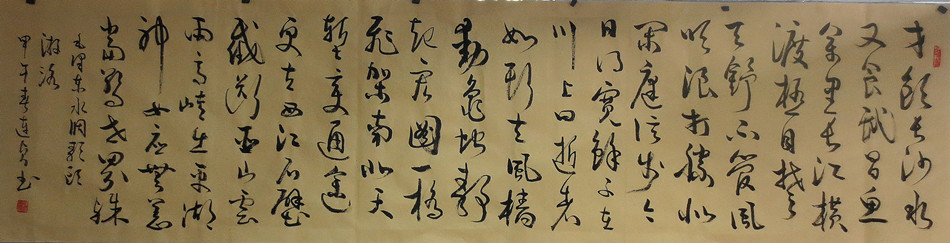 才飲長沙水
又食武昌魚
萬里長江橫
渡極目楚
天舒不管風
吹浪打勝似
閑庭信步今
日得寬餘子在
川上曰逝者
如斯夫風檣
動龜蛇靜
起宏圖一橋
飛架南北天
塹變通途
更立西江石壁
截斷巫山雲
雨高峽出平湖
神女應無恙
當驚世界殊
毛澤東水調歌頭
游泳
甲午春連書